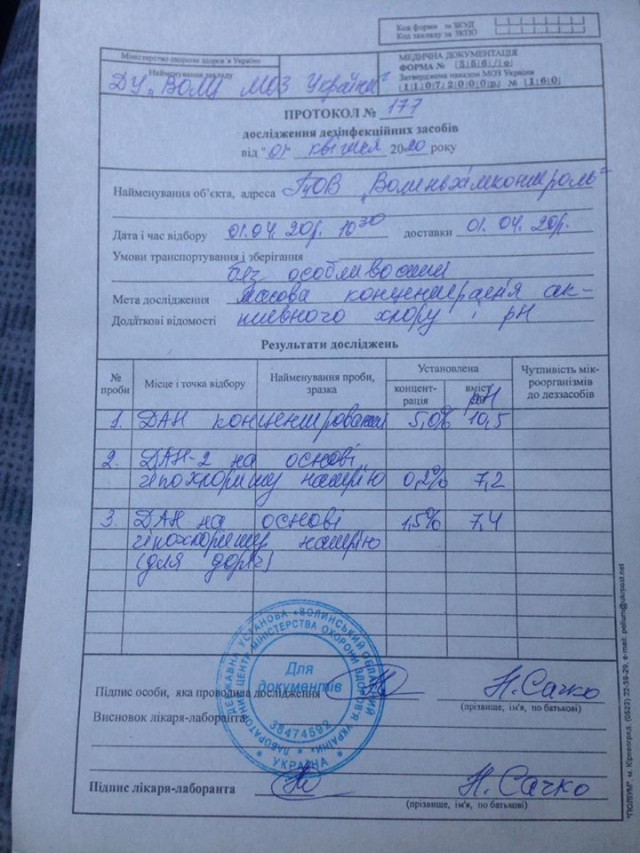 Код форми за ЗКУД
Код закладу за ЗКПО
Міністерство охорони здоров'я України
Найменування закладу
ДУ „ВОЛЦ МОЗ України"
МЕДИЧНА ДОКУМЕНТАЦІЯ
ФОРМА № 356/о
Затверджена наказом МОЗ України
11072000р № 160
ПРОТОКОЛ № 177
дослідження дезінфекційних засобів
від "01" квітня 2020 року
Найменування об'єкта, адреса ТОВ „Волиньхімконтроль"
Дата і час відбору 01.04.20р. 10 30 доставки 01.04.20р.
Умови транспортування і зберігання
без особливостей
Мета дослідження Масова концентрація ак-
Додаткові відомості тивного хлору і рН
Результати досліджень
№ проби
Місце і точка відбору
Найменування проби, зразка
Установлена
концент-рація
вміст
рН
Чутливість мік-роорганізмів до деззасобів
1. ДАН концентрований 5,0% 10,5
2. ДАН-2 на основі
гіпохлориту натрію 0,2% 7,2
3. ДАН на основі 1,5% 7,4
гіпохлориту натрію
(для доріг)
ДЕРЖАВНА УСТАНОВА «ВОЛИНСЬКИЙ ОБЛАСНИЙ
ЛАБОРАТОРНИЙ ЦЕНТР МІНІСТЕРСТВА ОХОРОНИ ЗДОРОВ'Я УКРАЇНИ»
Для
документів
38474592
* УКРАЇНА *
Підпис особи, яка проводила дослідження Н. Сачко
(прізвище, ім'я, по батькові)
Висновок лікаря-лаборанта
Підпис лікаря-лаборанта Н. Сачко
(прізвище, ім'я, по батькові)
"ПОЛІУМ", м. Кіровоград, (0522) 22-39-29, e-mail: polium@ukrpost.net